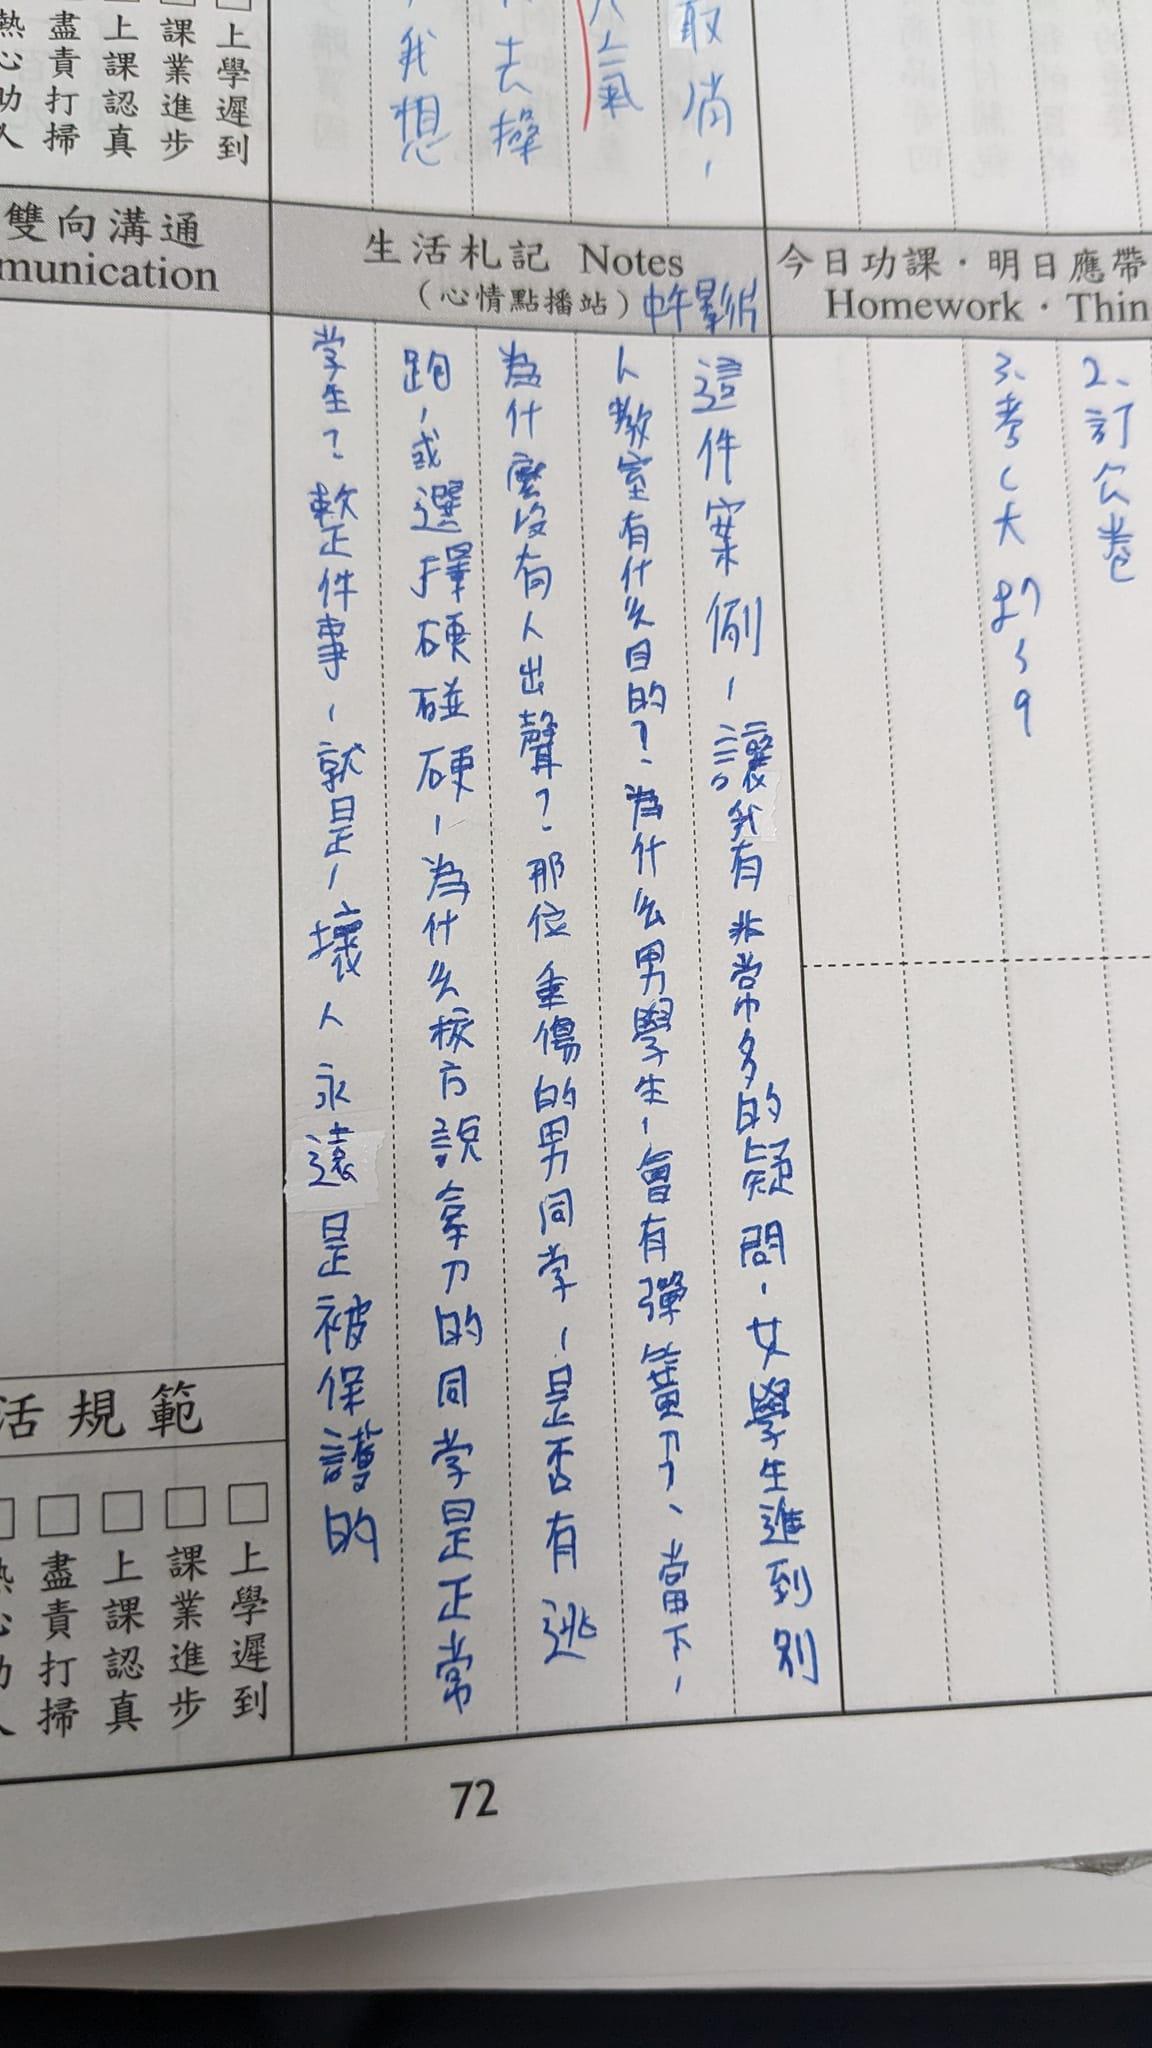 取消，
人氣
去操
，我想
上學遲到
課業進步
上課認真
盡責打掃
熱心助人
今日功課．明日應帶
Homework．Thin
2、訂公卷
生活札記 Notes
（心情點播站）中午影片
這件案例，讓我有非常多的疑問，女學生進到別
人教室有什么目的？為什么男學生，會有彈簧刀、當下，
為什麼沒有人出聲？那位重傷的男同学，是否有逃
跑，或選擇硬碰硬，為什么校方説拿刀的同学是正常
学生？整件事，就是，壞人永遠是被保護的
雙向溝通
munication
活規範
上學遲到
課業進步
上課認真
盡責打掃
熱心助人
72